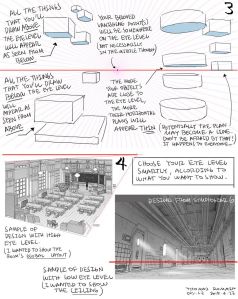 3
ALL THE THINGS
THAT YOU'LL
DRAW ABOVE
THE EYE LEVEL
WILL APPEAR
AS SEEN FROM
BELOW
YOUR BELOVED
VANISHING POINT(S)
WILL BE SOMEWHERE
ON THE EYE LEVEL
(NOT NECESSARILY
IN THE MIDDLE THOUGH)
ALL THE THINGS
THAT YOU'LL DRAW
BELOW THE EYE LEVEL
WILL
APPEAR AS
SEEN FROM
ABOVE
THE MORE
YOUR OBJECTS
ARE CLOSE TO
THE EYE LEVEL,
THE MORE
THEIR HORIZONTAL
PLANS WILL
APPEAR THIN
(POTENTIALLY THE PLAN
MAY BECOME A LINE.
DON'T BE AFRAID OF THAT!
IT HAPPENS TO EVERYONE.)
4
CHOOSE YOUR EYE LEVEL
SMARTLY, ACCORDING TO
WHAT YOU WANT TO SHOW.
SAMPLE OF
DESIGN WITH HIGH
EYE LEVEL
(I WANTED TO SHOW THE
ROOM'S GLOBAL LAYOUT)
SAMPLE OF DESIGN
WITH LOW EYE LEVEL
(I WANTED TO SHOW
THE CEILING)